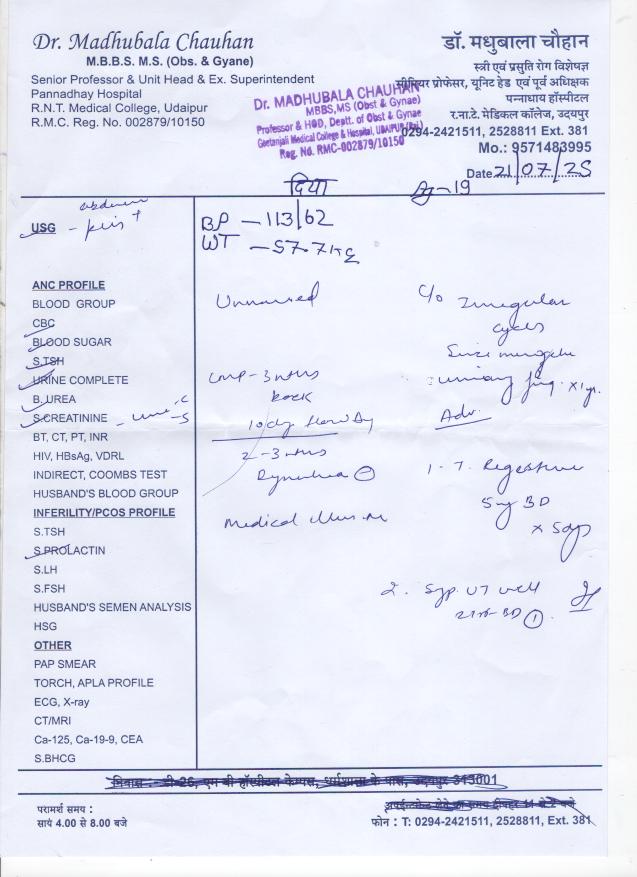 Dr. Madhubala Chauhan
M.B.B.S. M.S. (Obs. & Gyane)
Senior Professor & Unit Head & Ex. Superintendent
Pannadhay Hospital
R.N.T. Medical College, Udaipur
R.M.C. Reg. No. 002879/10150
डॉ. मधुबाला चौहान
स्त्री एवं प्रसुति रोग विशेषज्ञ
सीनियर प्रोफेसर, यूनिट हेड एवं पूर्व अधिक्षक
पन्नाधाय हॉस्पीटल
र.ना.टे. मेडिकल कॉलेज, उदयपुर
0294-2421511, 2528811 Ext. 381
Mo.: 9571483995
Date 21/07/25
Dr. MADHUBALA CHAUHAN
MBBS,MS (Obst & Gynae)
Professor & HOD, Deptt. of Obst & Gynae
Geetanjali Medical College & Hospital, UDAIPUR (Raj.)
Reg. No. RMC-002879/10150
दिया
Ag-19
abdomen
USG
BP - 113/62
WT - 57.7kg
ANC PROFILE
BLOOD GROUP
Unmarried
c/o Irregular
cycles
CBC
BLOOD SUGAR
S.TSH
URINE COMPLETE
LMP - 3 mths
back
x 1 yr.
B. UREA
S.CREATININE
Adv.
BT, CT, PT, INR
HIV, HBsAg, VDRL
2-3 mths
INDIRECT, COOMBS TEST
HUSBAND'S BLOOD GROUP
1. T. Regestrone
5mg BD
x 5days
INFERILITY/PCOS PROFILE
Medical illness
S.TSH
S.PROLACTIN
S.LH
S.FSH
2. Syp.
BD
HUSBAND'S SEMEN ANALYSIS
HSG
OTHER
PAP SMEAR
TORCH, APLA PROFILE
ECG, X-ray
CT/MRI
Ca-125, Ca-19-9, CEA
S.BHCG
निवास : डी-25, एम बी हॉस्पीटल केम्पस, धर्माशाला के पास, उदयपुर 313001
परामर्श समय :
सायं 4.00 से 8.00 बजे
फोन : T: 0294-2421511, 2528811, Ext. 381